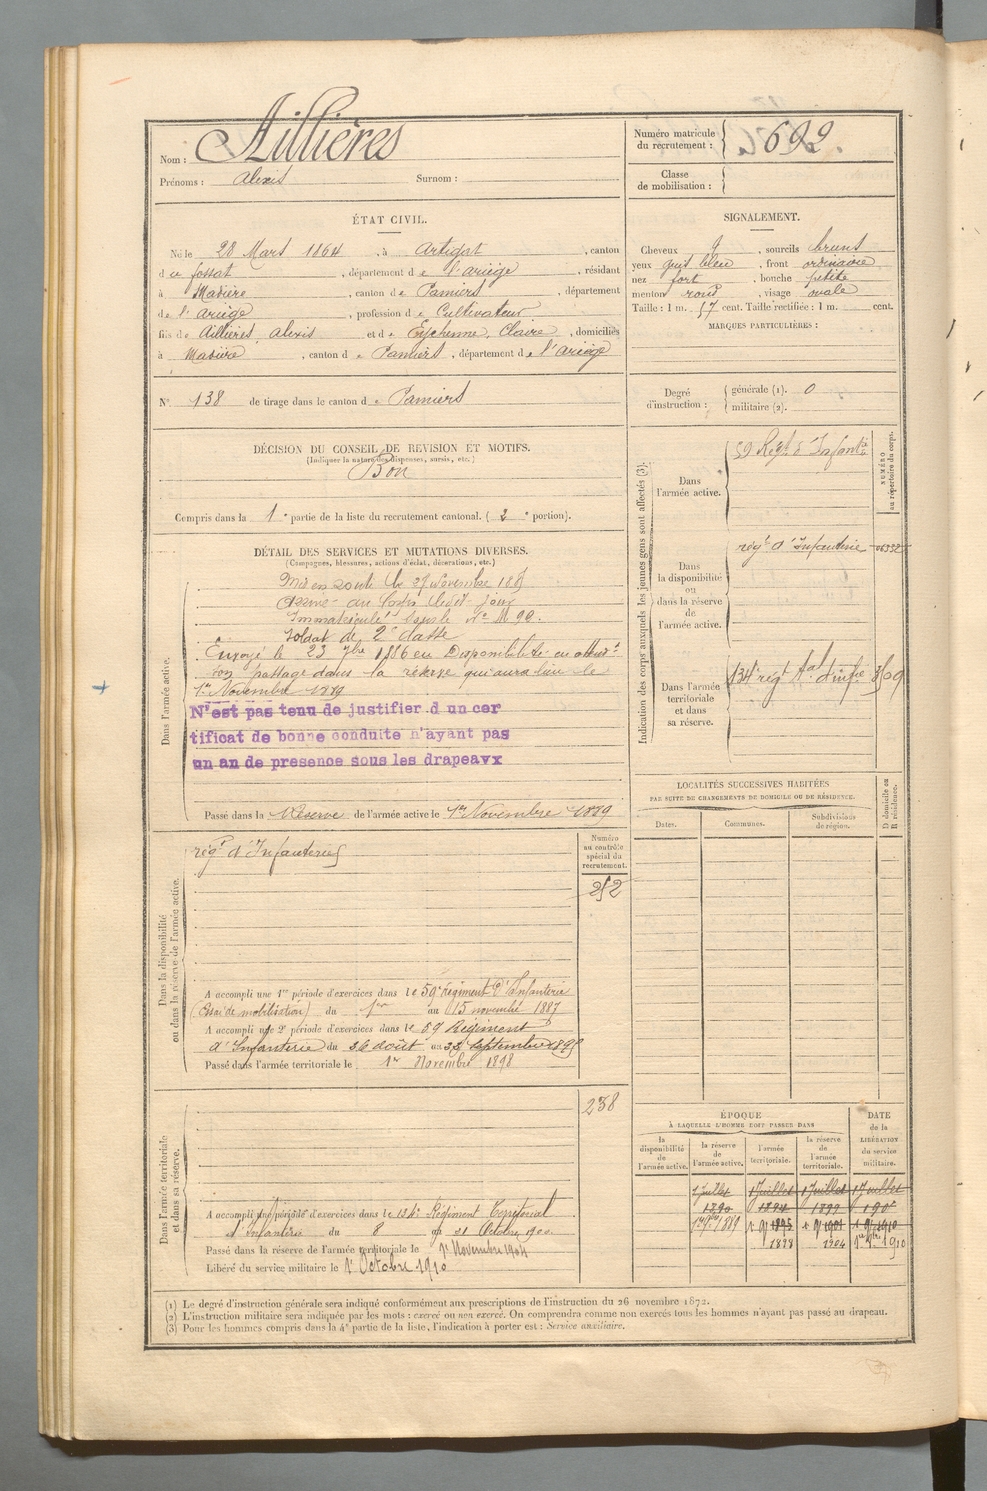 Nom : Aillières
Prénoms : Alexis Surnom :
Numéro matricule du recrutement : 692.
Classe de mobilisation :
ÉTAT CIVIL.
Né le 28 Mars 1864, à Artigat, canton
du fossat, département de l'ariège, résidant
à Madière, canton de Pamiers, département
de l'ariège, profession de Cultivateur
fils de Aillières, alexis et de Eychenne, Claire, domiciliés
à Madière, canton de Pamiers, département de l'ariège
SIGNALEMENT.
Cheveux d, sourcils bruns
yeux gris bleu, front ordinaire
nez fort, bouche petite
menton rond, visage ovale
Taille : 1 m. 57 cent. Taille rectifiée : 1 m. cent.
MARQUES PARTICULIÈRES :
N° 138 de tirage dans le canton de Pamiers
Degré d'instruction : générale (1). 0
militaire (2).
DÉCISION DU CONSEIL DE REVISION ET MOTIFS.
(Indiquer la nature des dispenses, sursis, etc.)
Bon
Compris dans la 1e partie de la liste du recrutement cantonal. (2e portion).
Indication des corps auxquels les jeunes gens sont affectés (3).
NUMÉRO au répertoire du corps.
Dans l'armée active.
59 Regt d'Infantie
Dans la disponibilité ou dans la réserve de l'armée active.
régt d'Infanterie
Dans l'armée territoriale et dans sa réserve.
134e régt tal d'infie 3509
DÉTAIL DES SERVICES ET MUTATIONS DIVERSES.
(Campagnes, blessures, actions d'éclat, décorations, etc.)
Dans l'armée active.
Mis en route le 27 Novembre 1885
Arrivé au Corps le dit jour
Immatriculé sous le N°
Soldat de 2e classe
Envoyé le 23 7bre 1886 en Disponibilité en attendt
son passage dans la réserve qui aura lieu le
1er Novembre 1889
N'est pas tenu de justifier d un cer
tificat de bonne conduite n'ayant pas
un an de presence sous les drapeavx
Passé dans la Réserve de l'armée active le 1er Novembre 1889
LOCALITÉS SUCCESSIVES HABITÉES
PAR SUITE DE CHANGEMENTS DE DOMICILE OU DE RÉSIDENCE.
Dates. Communes. Subdivisions de région. D domicile ou R résidence.
Dans la disponibilité ou dans la réserve de l'armée active.
régt d'Infanterie
Numéro au contrôle spécial du recrutement.
252
A accompli une 1re période d'exercices dans le 59e Régiment d'Infanterie
(Essai de mobilisation) du 1er au 15 novembre 1887
A accompli une 2e période d'exercices dans le 59 Régiment
d'Infanterie du 26 août au 22 septembre 1895
Passé dans l'armée territoriale le 1er Novembre 1898
Dans l'armée territoriale et dans sa réserve.
238
A accompli une période d'exercices dans le 134e Régiment Territorial
d'Infanterie du 8 au 21 Octobre 1900
Passé dans la réserve de l'armée territoriale le 1er Novembre 1904
Libéré du service militaire le 1er Octobre 1910
ÉPOQUE
À LAQUELLE L'HOMME DOIT PASSER DANS
la disponibilité de l'armée active. la réserve de l'armée active. l'armée territoriale. la réserve de l'armée territoriale.
DATE de la LIBÉRATION du service militaire.
1 juillet 1 Juillet 1 Juillet 1 Juillet
1890 1899
1898 1904 1910
(1) Le degré d'instruction générale sera indiqué conformément aux prescriptions de l'instruction du 26 novembre 1872.
(2) L'instruction militaire sera indiquée par les mots : exercé ou non exercé. On comprendra comme non exercés tous les hommes n'ayant pas passé au drapeau.
(3) Pour les hommes compris dans la 4e partie de la liste, l'indication à porter est : Service auxiliaire.